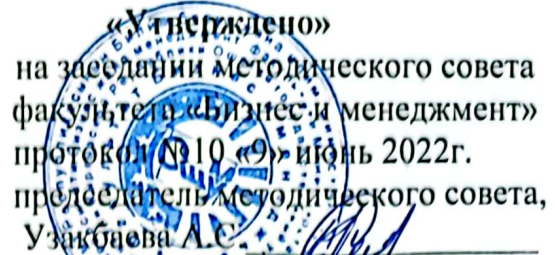 «Утверждено»
на заседании методического совета
факультета «Бизнес и менеджмент»
протокол №10 «9» июнь 2022г.
председатель методического совета,
Узакбаева А.С.